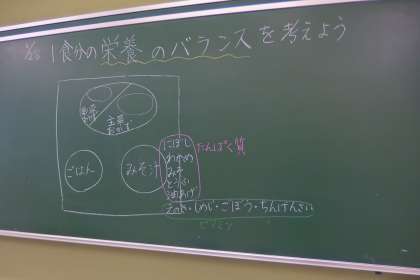 1食分の栄養のバランスを考えよう
主菜
おかず
ごはん
みそ汁
にぼし
わかめ
みそ
とうふ
油あげ
たんぱく質
えのき・しめじ・ごぼう・ちんげんさい
ビタミン